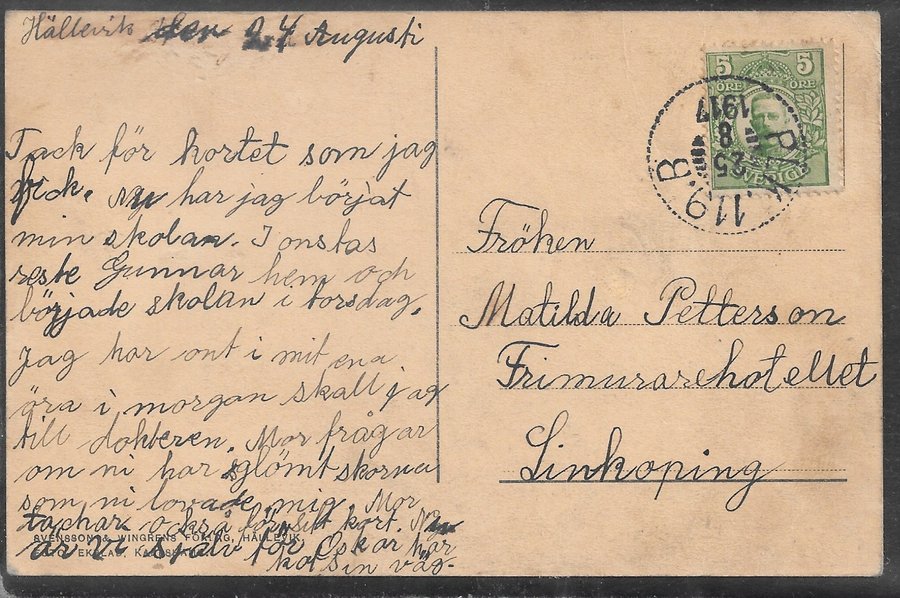 Hällevik den 24 Augusti
Tack för kortet som jag
fick. Nu har jag börjat
min skolan. I onstas
reste Gunnar hem och
började skolan i torsdag.
Jag har ont i mit ena
öra i morgon skall jag
till doktoren. Mor frågar
om ni har glömt skorna
som ni lovade mig. Mor
tackar också för sitt kort. Nu
är vi själv för Oskar har
kol sin väg.
SVENSSON & WINGRENS FÖRLAG, HÄLLEVIK.
FOTO. EKBLAD, KARLSHAMN
5 5
ÖRE ÖRE
SVERIGE
PKXP 119.B
25 8
1917
Fröken
Matilda Petterson
Frimurarehotellet
Linkoping